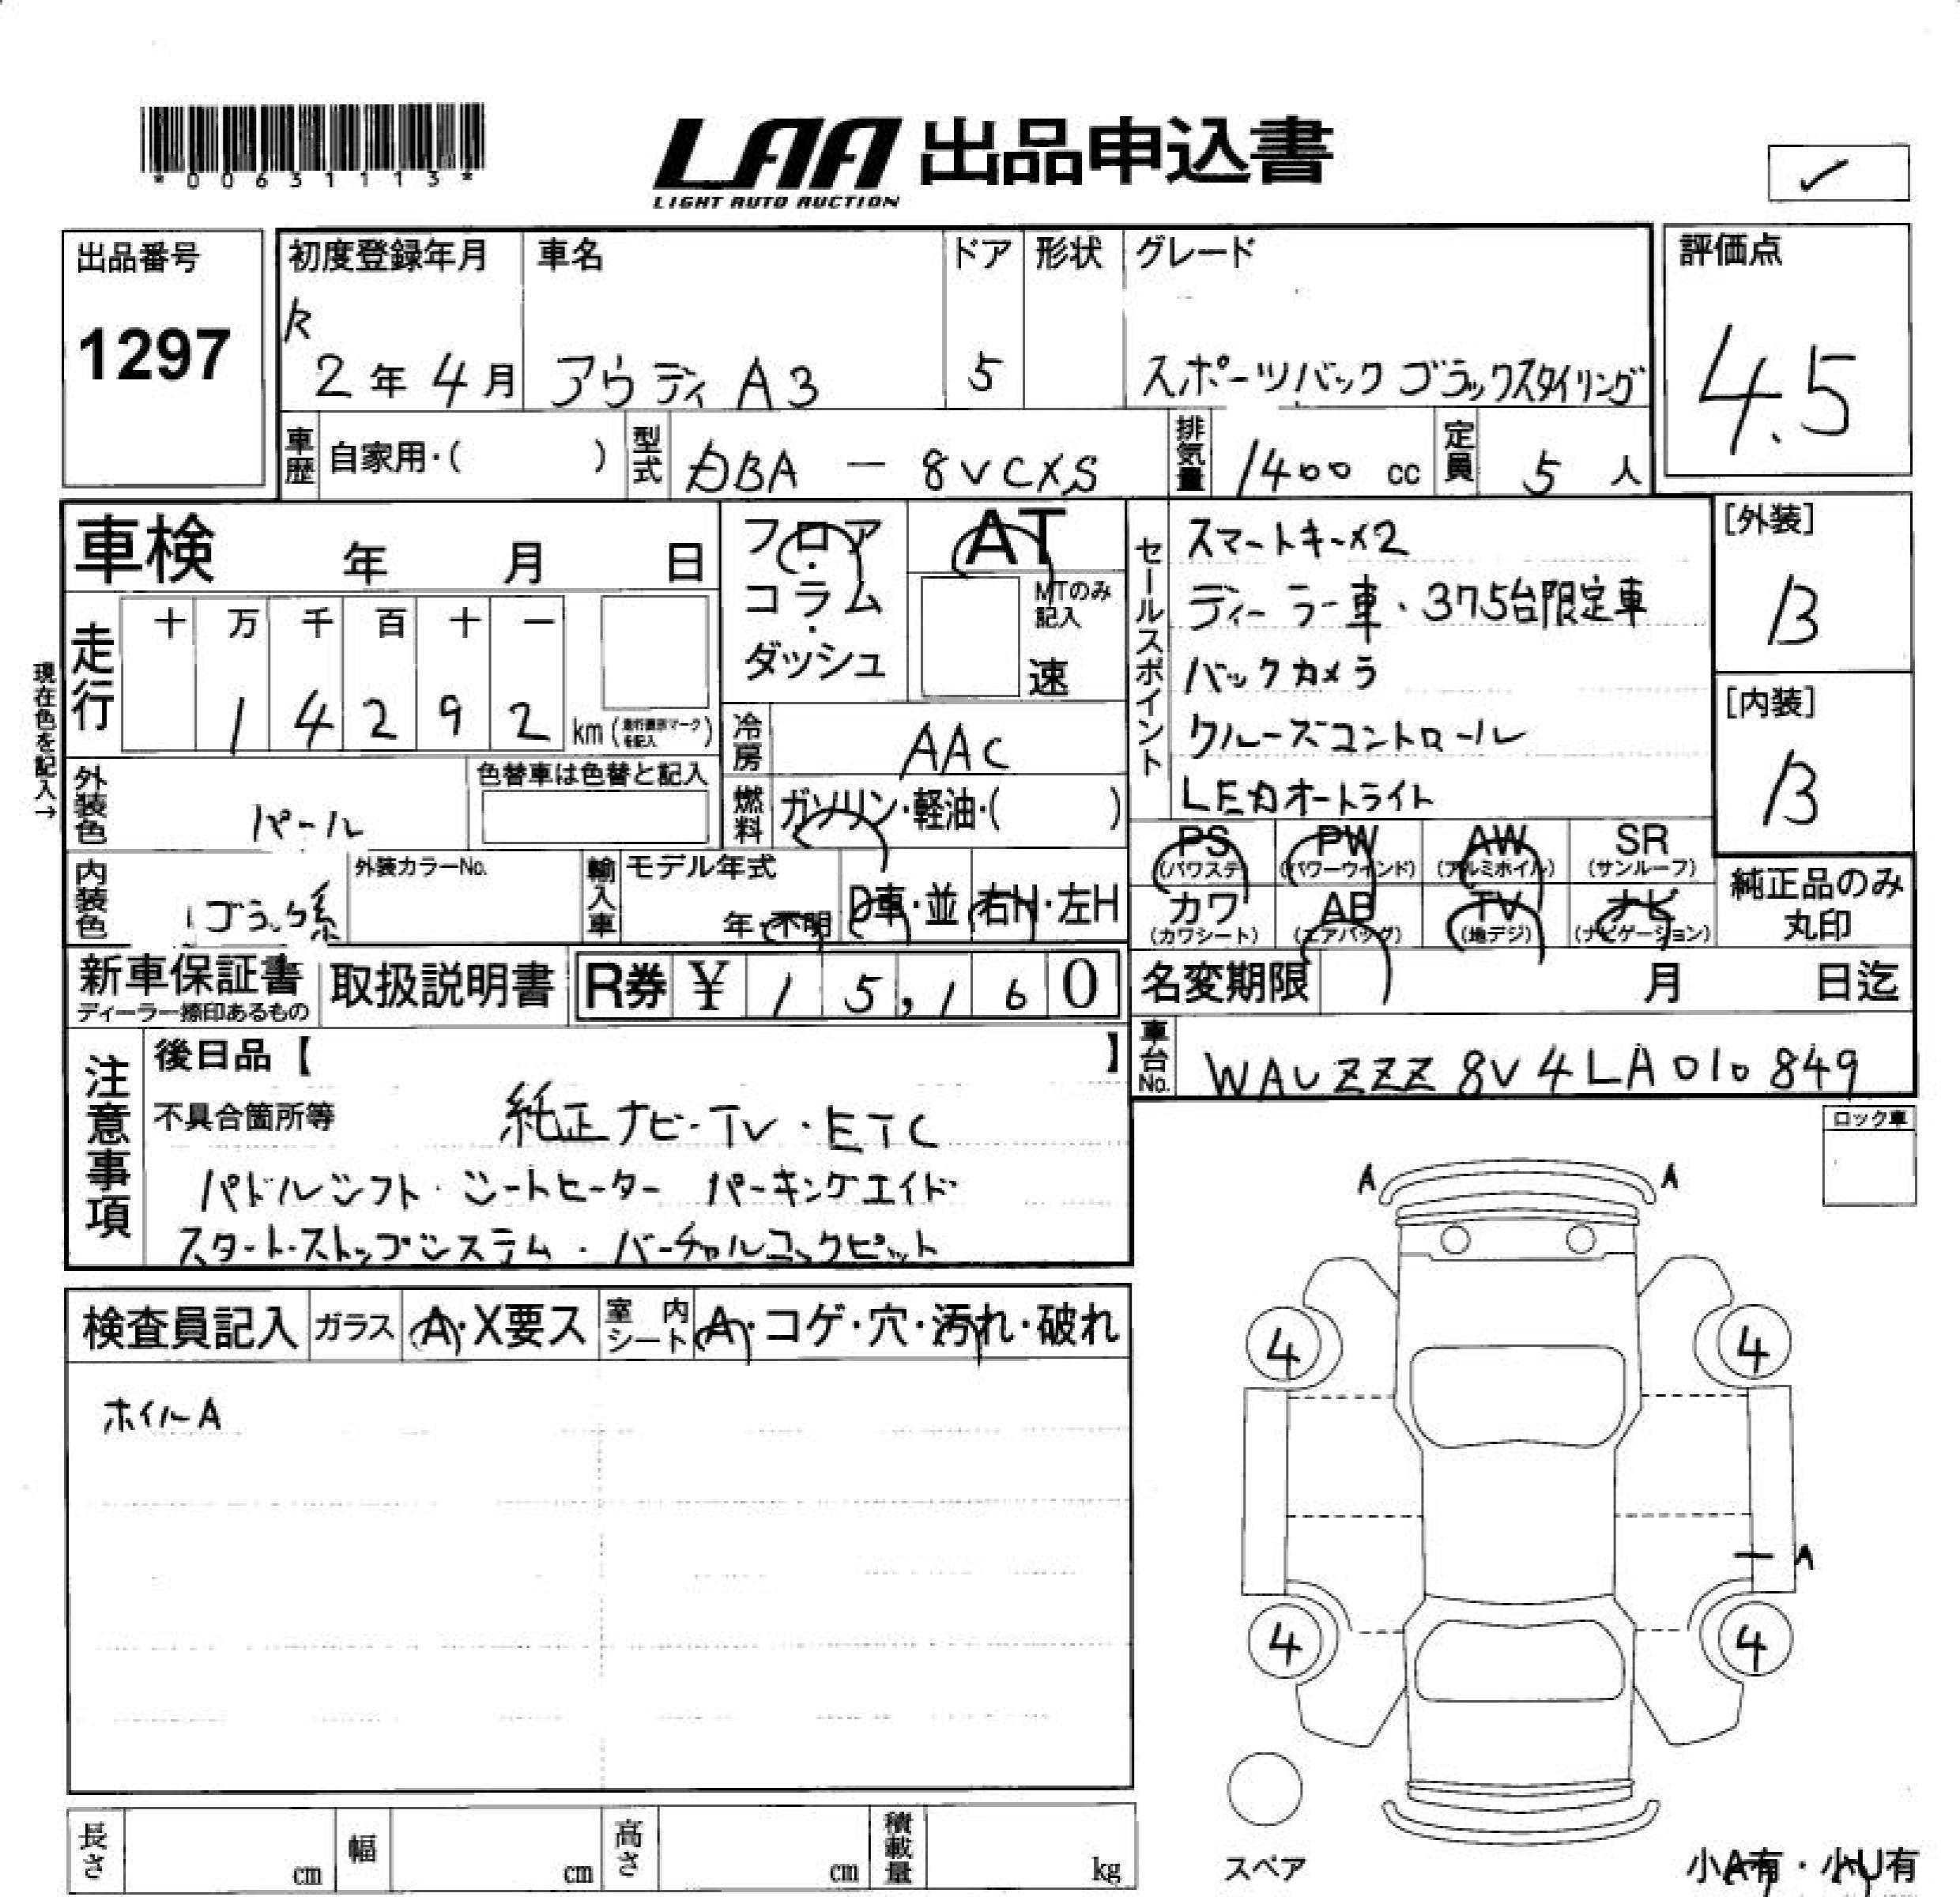 *00631113*
LAA 出品申込書
LIGHT AUTO AUCTION
✓
出品番号
1297
初度登録年月
R
2年4月
車名
アウディ A3
ドア
5
形状
グレード
スポーツバック ブラックスタイリング
評価点
4.5
車歴
自家用・( )
型式
DBA - 8VCXS
排気量
1400 cc
定員
5 人
車検 年 月 日
現在色を記入→
走行
十 万 千 百 十 一
1 4 2 9 2
km
フロア・コラム・ダッシュ
AT
MTのみ記入
速
冷房
AAC
燃料
ガソリン・軽油・( )
セールスポイント
スマートキー×2
ディーラー車・375台限定車
バックカメラ
クルーズコントロール
LEDオートライト
[外装]
B
[内装]
B
外装色
パール
色替車は色替と記入
内装色
ブラック系
外装カラーNo.
輸入車
モデル年式
年・不明
D車・並
右H・左H
PS PW AW SR
(パワステ) (パワーウィンド) (アルミホイル) (サンルーフ)
カワ AB TV ナビ
(カワシート) (エアバッグ) (地デジ) (ナビゲーション)
純正品のみ
丸印
新車保証書
ディーラー捺印あるもの
取扱説明書
R券 ¥ 15,160
名変期限 月 日迄
車台No.
WAUZZZ8V4LA010849
注意事項
後日品【 】
不具合箇所等
純正ナビ・TV・ETC
パドルシフト・シートヒーター パーキングエイド
スタート・ストップシステム・バーチャルコックピット
ロック車
A A
検査員記入
ガラス
A・X要ス
室内シート
A・コゲ・穴・汚れ・破れ
ホイルA
4 4
A
4 4
スペア
小A有・小U有
長さ cm
幅 cm
高さ cm
積載量 kg